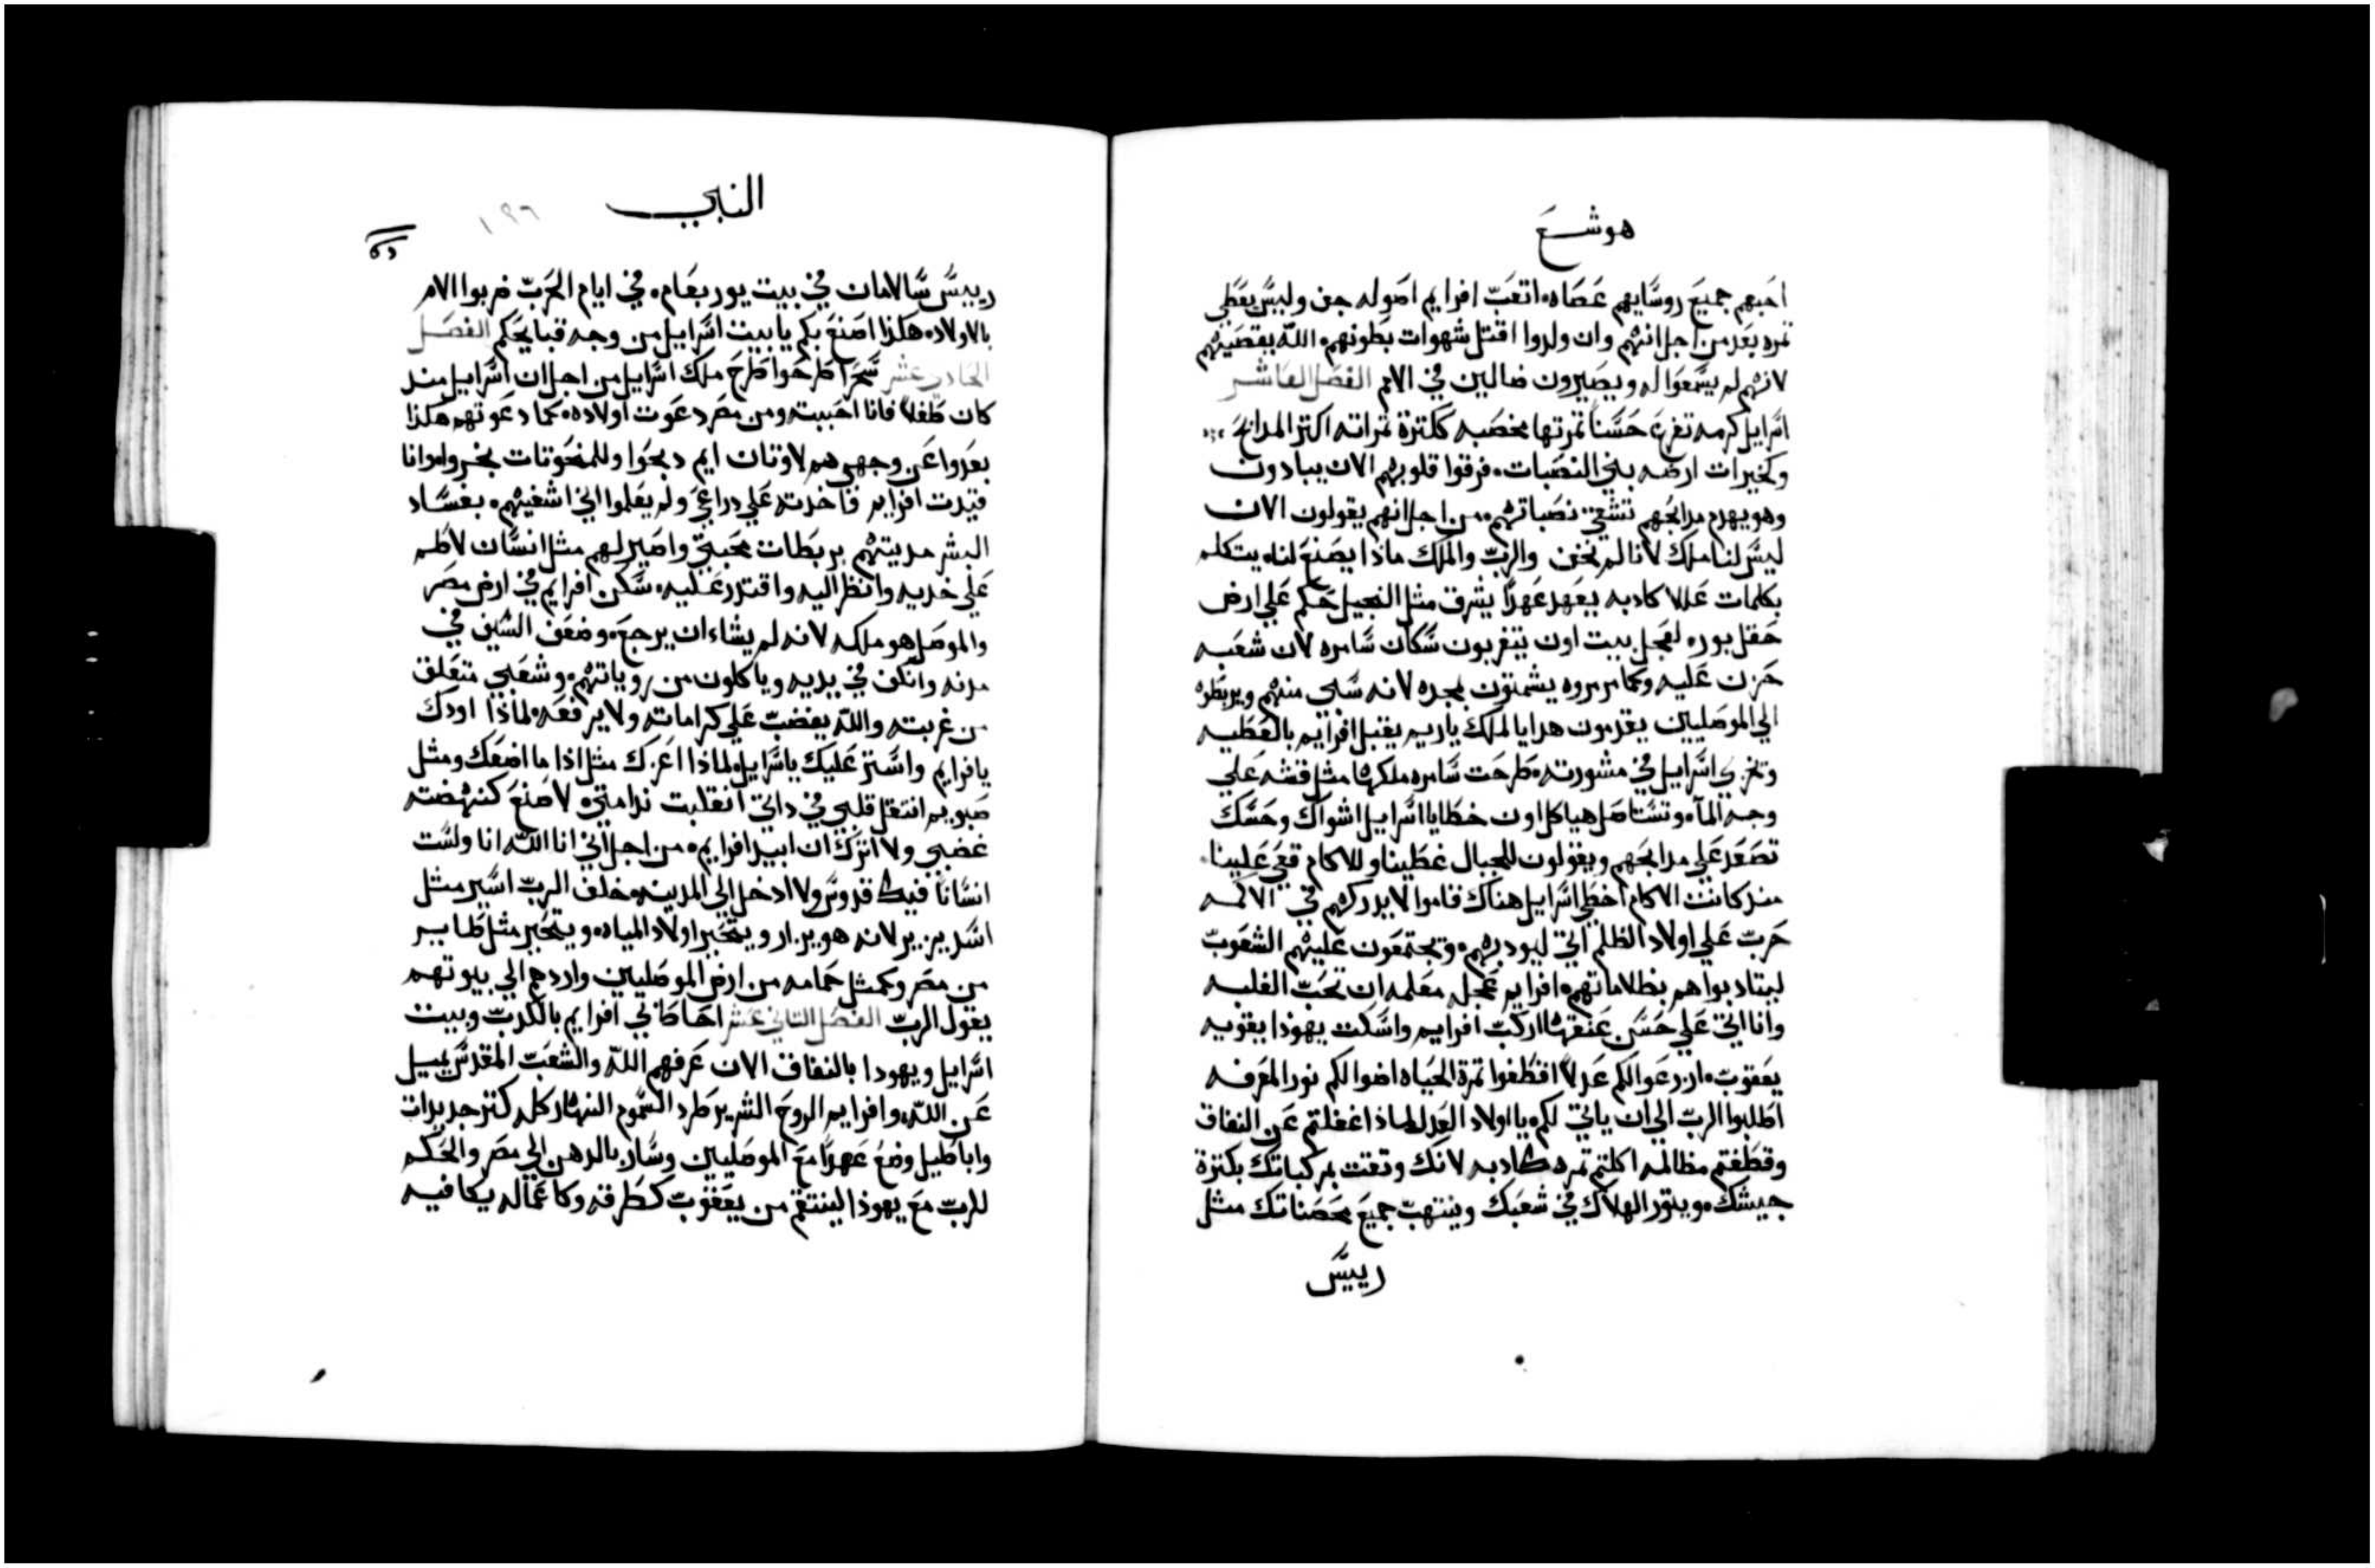 هوشع
احبهم جميع روسايهم عصاه اتعب افرايم اصوله جف وليس يعطي
ثمره بعد من اجل انهم وان ولدوا اقتل شهوات بطونهم الله يقصيهم
لانهم لم يسمعوا له ويصيرون ضالين في الامم الفصل العاشر
اسرايل كرمه تفرع حسنا ثمرتها مخصبه ككثرة ثمراته اكثر المدابح
وكخيرات ارضه بني النصبات فرقوا قلوبهم الان يبادون
وهو يهدم مدابحهم تشقي نصباتهم من اجل انهم يقولون الان
ليس لنا ملك لانا لم نخف والرب والملك ماذا يصنع لنا يتكلم
بكلمات عللا كادبه يعهد عهدا يشرق مثل النجيل حكم علي ارض
حقل بوره لعجل بيت اون يتغربون سكان سامره لان شعبه
حزن عليه وكما مرمروه يشمتون بمجده لانه سبي منهم ويربطوه
الي الموصليين يقدمون هدايا لملك ياريم يقبل افرايم بالعطيه
وتخزي اسرايل في مشورته طرحت سامره ملكها مثل قشه علي
وجه المآء وتستاصل هياكل اون خطايا اسرايل اشواك وحسك
تصعد علي مدابحهم ويقولون للجبال غطينا وللاكام قعي علينا
منذ كانت الاكام اخطي اسرايل هناك قاموا لا يدركهم في الاكمه
حرب علي اولاد الظلم اتي ليودبهم وتجتمعون عليهم الشعوب
ليتادبوا هم بظلاماتهم افرايم عجله معلمه ان تحب الغلبه
وانا اتي علي حسن عنقها اركب افرايم واسكت يهودا يقويه
يعقوب ازرعوا لكم عدلا اقطفوا ثمرة الحياه اضوا لكم نور المعرفه
اطلبوا الرب الي ان ياتي لكم يا اولاد العدل لماذا اغفلتم عن النفاق
وقطفتم مظالمه اكلتم ثمره كادبه لانك وتقت بمركباتك بكثرة
جيشك ويثور الهلاك في شعبك وينتهب جميع محصناتك مثل
رييس
النبي
١٩٦
رييس سالامان في بيت يوربعام في ايام الحرب ضربوا الام
بالاولاد هكذا اصنع بكم يا بيت اسرايل من وجه قبايحكم الفصل
الحادي عشر سحرا طرحوا طرح ملك اسرايل من اجل ان اسرايل منذ
كان طفلا فانا احببته ومن مصر دعوت اولاده كما دعوتهم هكذا
بعدوا عن وجهي هم لاوثان ايم دبحوا وللمنحوتات بخروا وانا
قيدت افرايم فاخدته علي دراعي ولم يعلموا اني اشفيهم بفساد
البشر مديتهم بربطات محبتي واصير لهم مثل انسان لاطم
علي خديه وانظر اليه واقتدر عليه سكن افرايم في ارض مصر
والموصل هو ملكه لانه لم يشاء ان يرجع وضعف السيف في
مدنه واتكن في يديه وياكلون من روياتهم وشعبي متعلق
من غربته والله يغضب علي كراماته ولا يرفعه لماذا اودك
يا افرايم واستر عليك يا اسرايل لماذا اعزك مثل اذا ما اضعك ومثل
صبويم انتقل قلبي في داتي انقلبت ندامتي لا اصنع كنهضة
غضبي ولا اترك ان ابيد افرايم من اجل اني انا الله انا ولست
انسانا فيك قدوس ولا ادخل الي المدينه خلف الرب اسير مثل
اسد يزير لانه هو يزار ويتحير اولاد المياه ويتحير مثل طاير
من مصر وكمثل حمامه من ارض الموصليين واردهم الي بيوتهم
يقول الرب الفصل الثاني عشر احاط بي افرايم بالكدب وبيت
اسرايل ويهودا بالنفاق الان عرفهم الله والشعب المقدس يميل
عن الله وافرايم الروح الشرير طرد السموم النهار كله كثر جديدات
واباطيل وضع عهدا مع الموصليين وسار بالدهن الي مصر والحكم
للرب مع يهوذا لينتقم من يعقوب كطرقه وكاعماله يكافيه